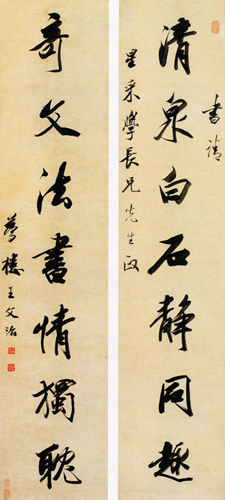 清泉白石静同趣
書請
星采學長兄先生政
奇文法書情獨耽
夢樓王文治